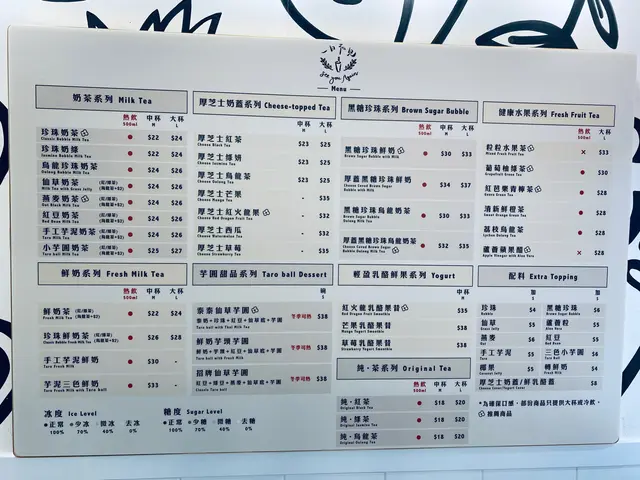 See you Again
Menu
奶茶系列 Milk Tea
熱飲 500ml 中杯 M 大杯 L
珍珠奶茶 $22 $24
Classic Bubble Milk Tea
珍珠奶綠 $22 $24
Jasmine Bubble Milk Tea
烏龍珍珠奶茶 $24 $26
Oolong Bubble Milk Tea
仙草奶茶 (紅/綠茶) (烏龍茶+$2) $24 $26
Milk Tea with Grass Jelly
燕麥奶茶 (紅/綠茶) (烏龍茶+$2) $24 $26
Oat Black Milk Tea
紅豆奶茶 (紅/綠茶) (烏龍茶+$2) $24 $26
Red Bean Milk Tea
手工芋泥奶茶 (紅/綠茶) (烏龍茶+$2) $24 $26
Taro Milk Tea
小芋圓奶茶 (紅/綠茶) (烏龍茶+$2) $25 $27
Taro ball Milk Tea
鮮奶系列 Fresh Milk Tea
熱飲 500ml 中杯 M 大杯 L
鮮奶茶 (紅/綠茶) (烏龍茶+$2) $22 $24
Fresh Milk Tea
珍珠鮮奶茶 (紅/綠茶) (烏龍茶+$2) $26 $28
Classic Bubble Fresh Milk Tea
手工芋泥鮮奶 $30 -
Taro Fresh Milk
芋泥三色鮮奶 $33 -
Taro Fresh Milk with Taro ball
冰度 Ice Level
正常 少冰 微冰 去冰
100% 70% 40% 0%
糖度 Sugar Level
正常 少糖 微糖 去糖
100% 70% 40% 0%
厚芝士奶蓋系列 Cheese-topped Tea
中杯 M 大杯 L
厚芝士紅茶 $23 $25
Cheese Black Tea
厚芝士綠奶 $23 $25
Cheese Jasmine Tea
厚芝士烏龍茶 $23 $25
Cheese Oolong Tea
厚芝士芒果 - $35
Cheese Mango Tea
厚芝士紅火龍果 - $32
Cheese Red Dragon Fruit Tea
厚芝士西瓜 - $32
Cheese Watermelon Tea
厚芝士草莓 - $35
Cheese Strawberry Tea
芋圓甜品系列 Taro ball Dessert
碗 S
泰泰仙草芋圓 冬季可熱 $38
泰奶+珍珠+紅豆+仙草底+芋圓
Taro ball with Thai Milk Tea
鮮奶芋頭芋圓 冬季可熱 $38
鮮奶+芋頭+紅豆+仙草底+芋圓
Taro ball with Fresh Milk
招牌仙草芋圓 冬季可熱 $38
紅豆+綠豆+燕麥+仙草底+芋圓
Classic Taro ball
黑糖珍珠系列 Brown Sugar Bubble
熱飲 500ml 中杯 M 大杯 L
黑糖珍珠鮮奶 $30 $33
Brown Sugar Bubble with Milk
厚蓋黑糖珍珠鮮奶 $34 $37
Cheese Cured Brown Sugar Bubble with Milk
黑糖珍珠烏龍奶茶 $30 $33
Brown Sugar Bubble Oolong Milk Tea
厚蓋黑糖珍珠烏龍奶茶 $32 $35
Cheese Cured Brown Sugar Bubble Oolong Milk Tea
輕盈乳酪鮮果系列 Yogurt
中杯 M
紅火龍乳酪果昔 $35
Dragon Fruit Yogurt
芒果乳酪果昔 $38
Mango Yogurt Smoothie
草莓乳酪果昔 $38
Strawberry Yogurt Smoothie
純·茶系列 Original Tea
熱飲 500ml 中杯 M 大杯 L
純·紅茶 $18 $20
Original Black Tea
純·綠茶 $18 $20
Original Jasmine Tea
純·烏龍茶 $18 $20
Original Oolong Tea
健康水果系列 Fresh Fruit Tea
熱飲 500ml 大杯 L
粒粒水果茶 × $33
Mixed Fresh Fruit Tea
葡萄柚綠茶 $30
Grapefruit Green Tea
紅芭樂青檸茶 $28
清新鮮橙茶 $28
Sweet Orange Green Tea
荔枝烏龍茶 $28
Lychee Oolong Tea
蘆薈蘋果醋 × $28
Apple Vinegar with Aloe Vera
配料 Extra Topping
加 $ 加 $
珍珠 $4 黑糖珍珠 $6
Bubble Brown Sugar Bubble
仙草 $5 蘆薈粒 $5
Grass Jelly Aloe Vera
燕麥 $6 紅豆 $5
Oat Red Bean
手工芋泥 $5 三色小芋圓 $6
Taro Taro Ball
椰果 $5 轉鮮奶 $4
Coconut Jelly Fresh Milk
厚芝士奶蓋/鮮乳酪蓋 $8
*為確保口感，部份商品只提供大杯或冷飲。
推薦商品